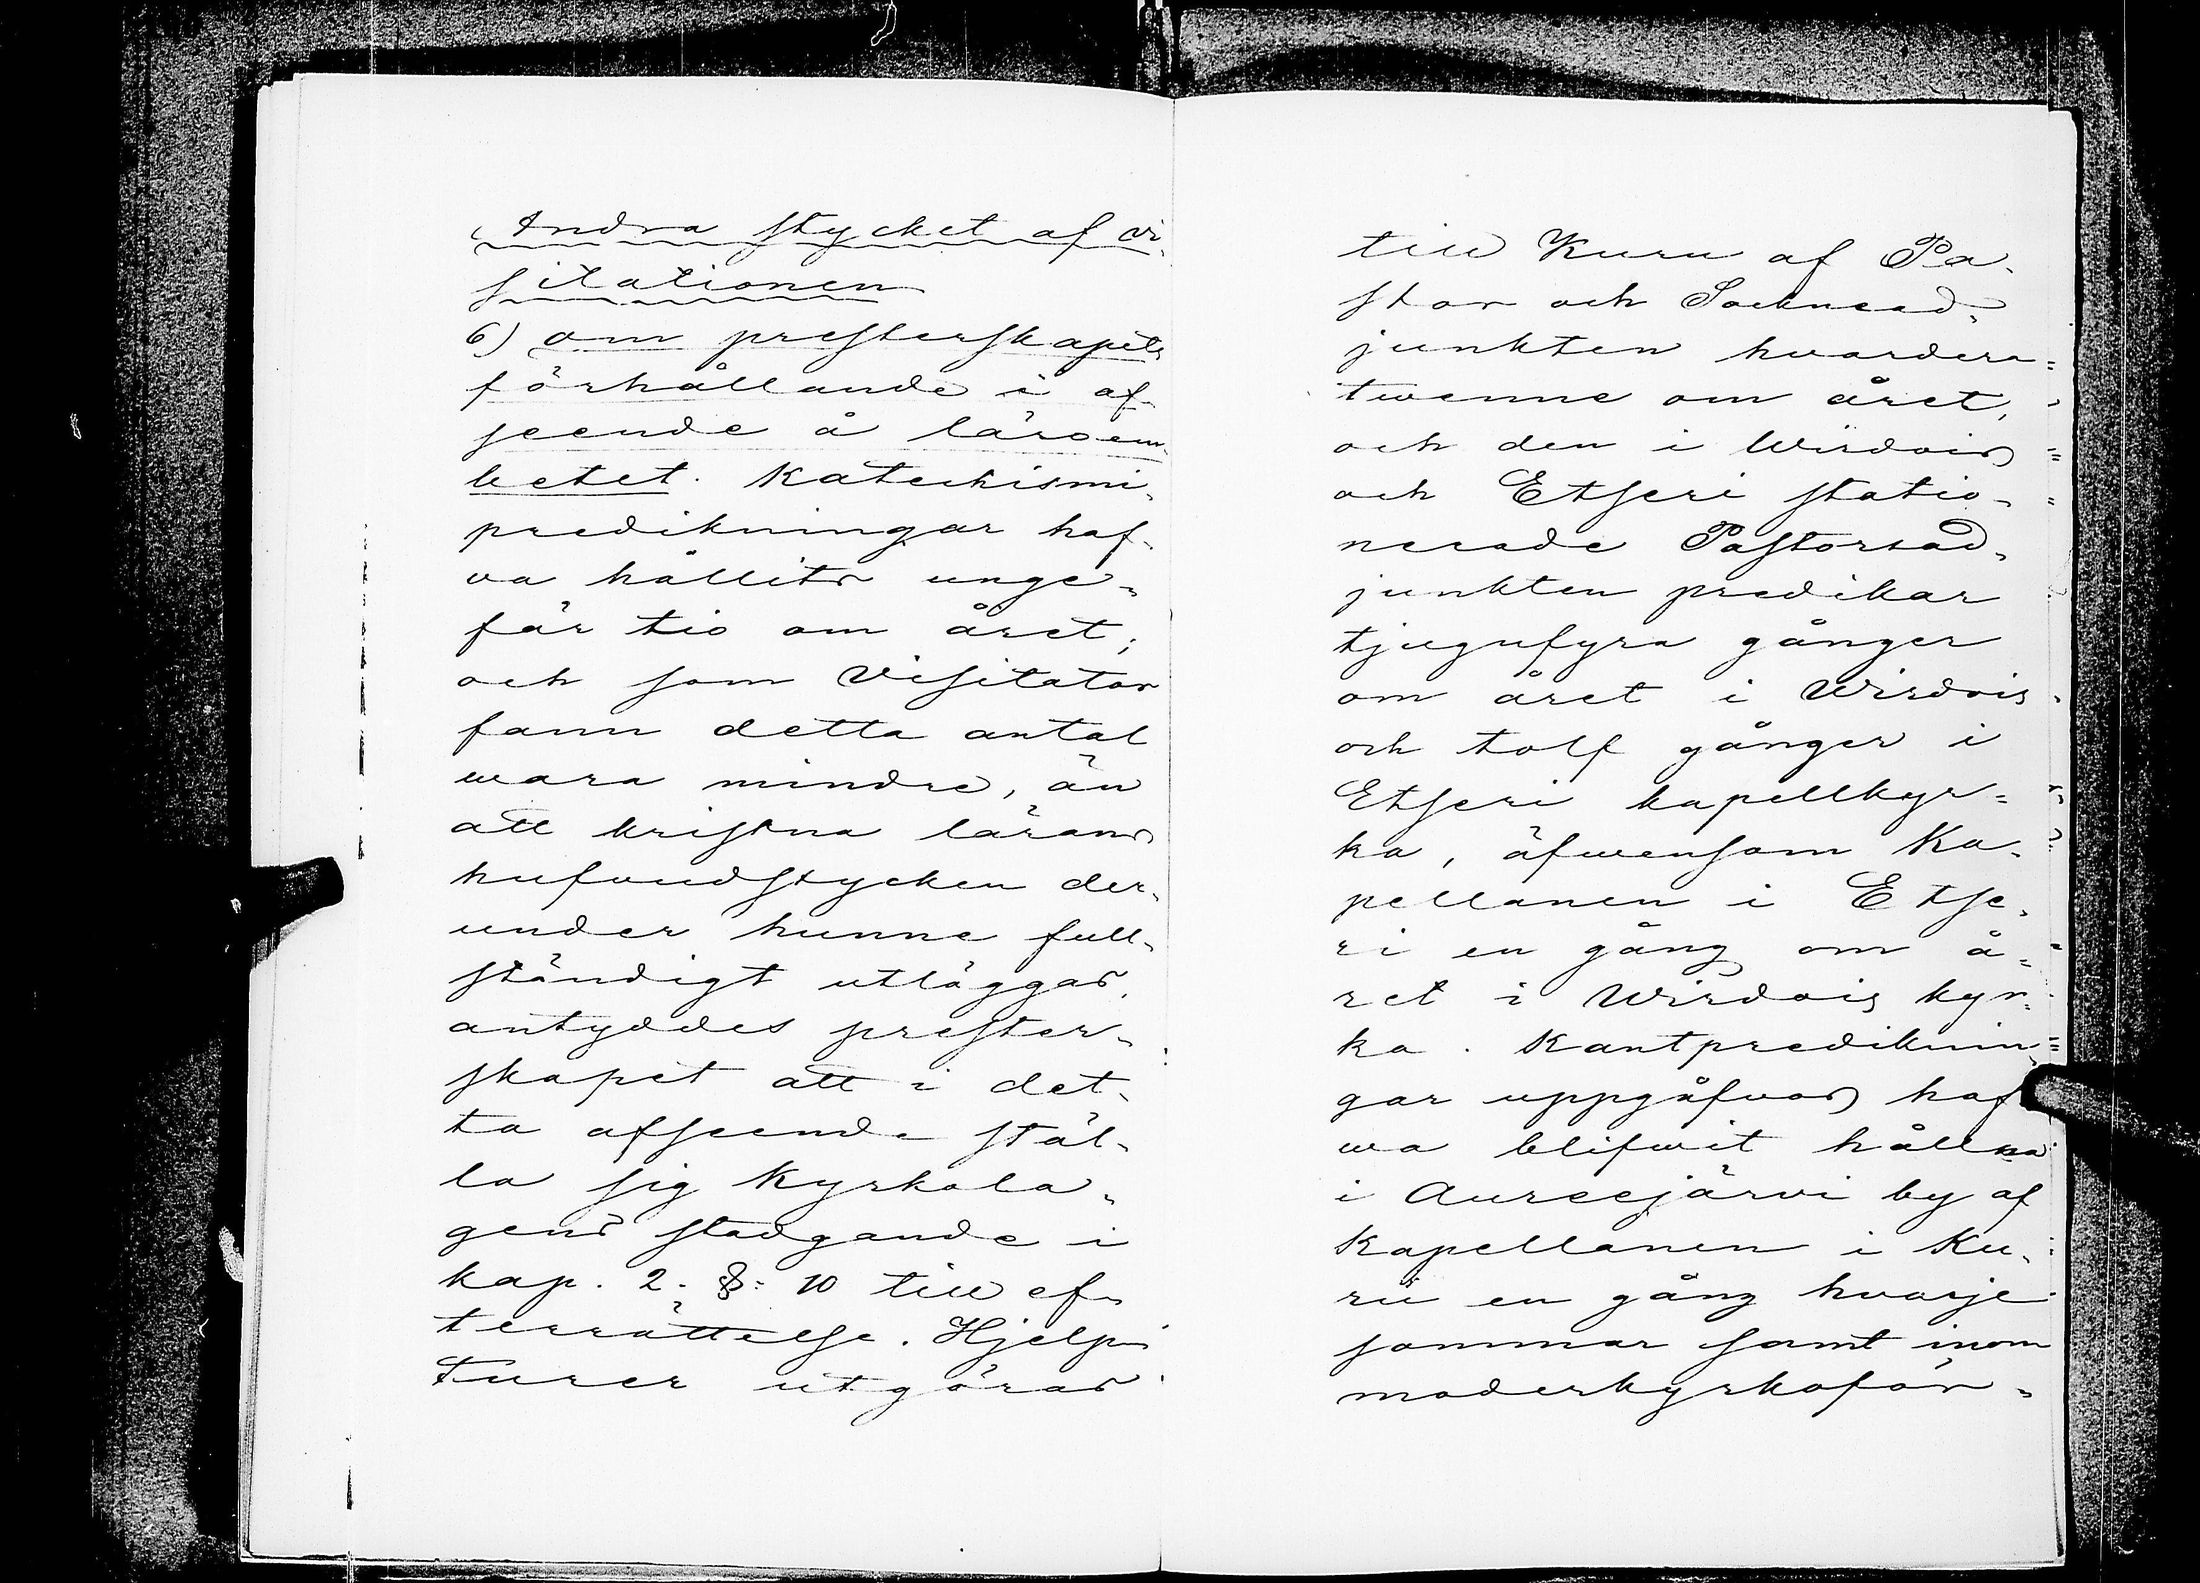 Andra stycket af vi-
sitationen
6) om presterskapets
förhållande i af-
seende å läroem-
betet. Katechismi-
predikningar haf-
va hållits unge-
fär tio om året;
och som Visitator
fann detta antal
wara mindre, än
att kristna lärans
hufvudstycken der-
under kunne full-
ständigt utläggas,
antyddes prester-
skapet att i det-
ta afseende stäl-
la sig Kyrkola-
gens stadgande i
kap. 2. §: 10 till ef-
terrättelse. Hjelp-
turer utgöras
till Kuru af Pa-
stor och Socknead-
junkten hvardera
twenne om året,
och den i Wirdois
och Etseri statio-
nerade Pastorsad-
junkten predikar
tjugufyra gånger
om året i Wirdois
och tolf gånger i
Etseri kapellkyr-
ka, äfwensom Ka-
pellanen i Etse-
ri en gång om å-
ret i Wirdois kyr-
ka. Kantprediknin-
gar uppgåfvos haf-
wa blifwit hållna
i Aureejärwi by af
Kapellanen i Ku-
ru en gång hvarje
sommar samt inom
moderkyrkoför-